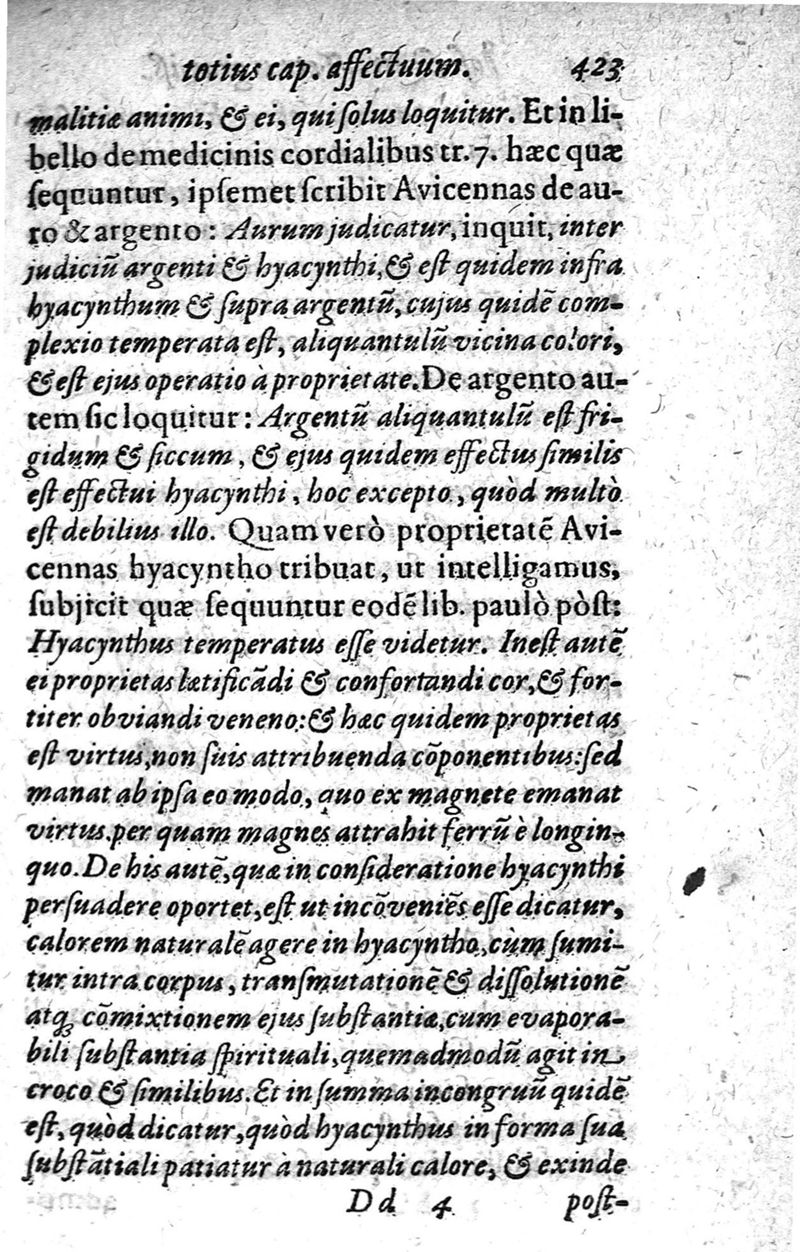 totius cap. affectuum. 423
malitiæ animi, & ei, qui ſolus loquitur. Et in li-
bello de medicinis cordialibus tr. 7. hæc quæ
ſequuntur, ipſemet ſcribit Avicennas de au-
ro & argento: Aurum judicatur, inquit, inter
judiciũ argenti & hyacynthi, & eſt quidem infra
hyacynthum & ſupra argentũ, cujus quidẽ com-
plexio temperata eſt, aliquantulũ vicina colori,
& eſt ejus operatio à proprietate. De argento au-
tem ſic loquitur: Argentũ aliquantulũ eſt fri-
gidum & ſiccum, & ejus quidem effectus ſimilis
eſt effectui hyacynthi, hoc excepto, quòd multò
eſt debilius illo. Quam verò proprietatẽ Avi-
cennas hyacyntho tribuat, ut intelligamus,
ſubjicit quæ ſequuntur eodẽ lib. paulò pòſt:
Hyacynthus temperatus eſſe videtur. Ineſt autẽ
ei proprietas lætificãdi & confortandi cor, & for-
titer obviandi veneno: & hæc quidem proprietas
eſt virtus, non ſuis attribuenda cõponentibus: ſed
manat ab ipſa eo modo, quo ex magnete emanat
virtus. per quam magnes attrahit ferrũ è longin-
quo. De his autẽ, quæ in conſideratione hyacynthi
perſuadere oportet, eſt ut incõveniẽs eſſe dicatur,
calorem naturalẽ agere in hyacyntho, cùm ſumi-
tur intra corpus, tranſmutationẽ & diſſolutionẽ
atq́; cõmixtionem ejus ſubſtantiæ, cum evapora-
bili ſubſtantia ſpirituali, quemadmodũ agit in
croco & ſimilibus. Et in ſumma incongruũ quidẽ
eſt, quòd dicatur, quòd hyacynthus in forma ſua
ſubſtãtiali patiatur à naturali calore, & exinde
Dd 4 poſt-